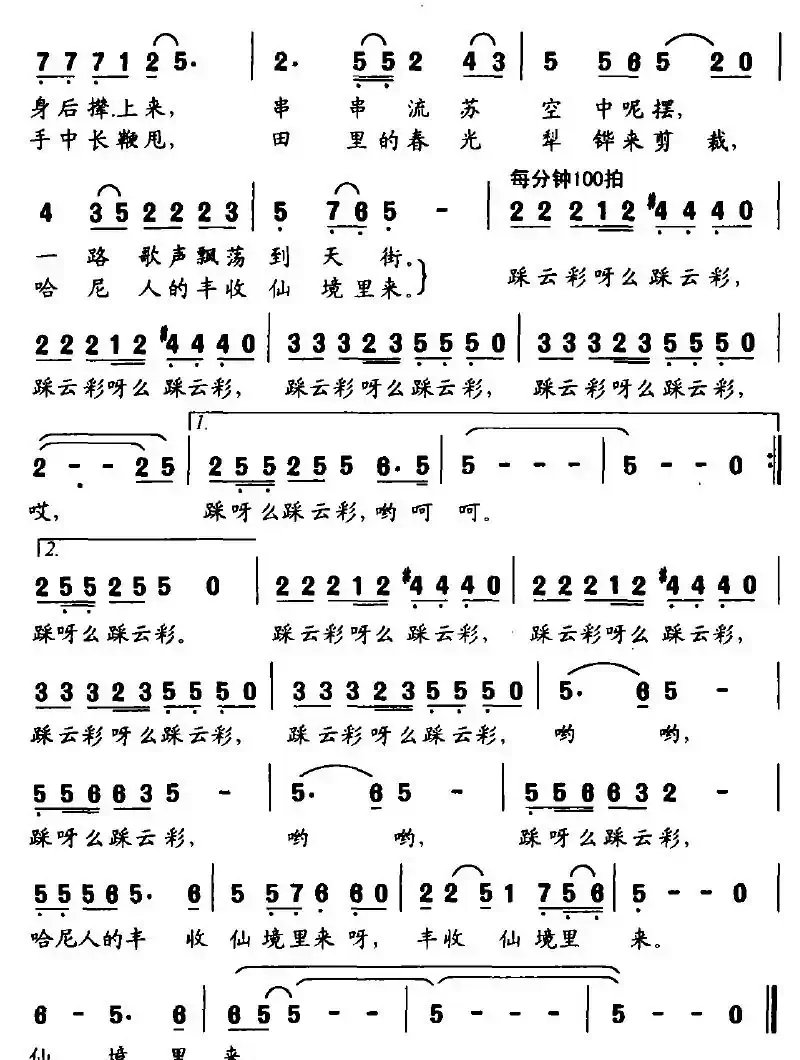 7 7 7 1 2 5. | 2. 5 5 2 4 3 | 5 5 6 5 2 0 |
身后撵上来, 串 串 流 苏 空 中呢摆,
手中长鞭甩, 田 里的春 光 犁 铧来剪 裁,
每分钟100拍
4 3 5 2 2 2 3 | 5 7 6 5 - | 2 2 2 1 2 #4 4 4 0 |
一 路 歌声飘荡到 天 街。
哈 尼 人的丰收仙 境里来。}
踩云彩呀么踩云彩,
2 2 2 1 2 #4 4 4 0 | 3 3 3 2 3 5 5 5 0 | 3 3 3 2 3 5 5 5 0 |
踩云彩呀么 踩云彩, 踩云彩呀么踩云彩, 踩云彩呀么踩云彩,
1.
2 - - 2 5 | 2 5 5 2 5 5 6. 5 | 5 - - - | 5 - - 0 :|
哎, 踩呀么踩云彩,哟呵 呵。
2.
2 5 5 2 5 5 0 | 2 2 2 1 2 #4 4 4 0 | 2 2 2 1 2 #4 4 4 0 |
踩呀么踩云彩。 踩云彩呀么 踩云彩, 踩云彩呀么 踩云彩,
3 3 3 2 3 5 5 5 0 | 3 3 3 2 3 5 5 5 0 | 5. 6 5 - |
踩云彩呀么踩云彩, 踩云彩呀么踩云彩, 哟 哟,
5 5 6 6 3 5 - | 5. 6 5 - | 5 5 6 6 3 2 - |
踩呀么踩云彩, 哟 哟, 踩呀么踩云彩,
5 5 5 6 5. 6 | 5 5 7 6 6 0 | 2 2 5 1 7 5 6 | 5 - - 0 |
哈尼人的丰 收 仙境里来呀, 丰收 仙境里 来。
6 - 5. 6 | 6 5 5 - - | 5 - - - | 5 - - 0 ||
仙 境 里 来